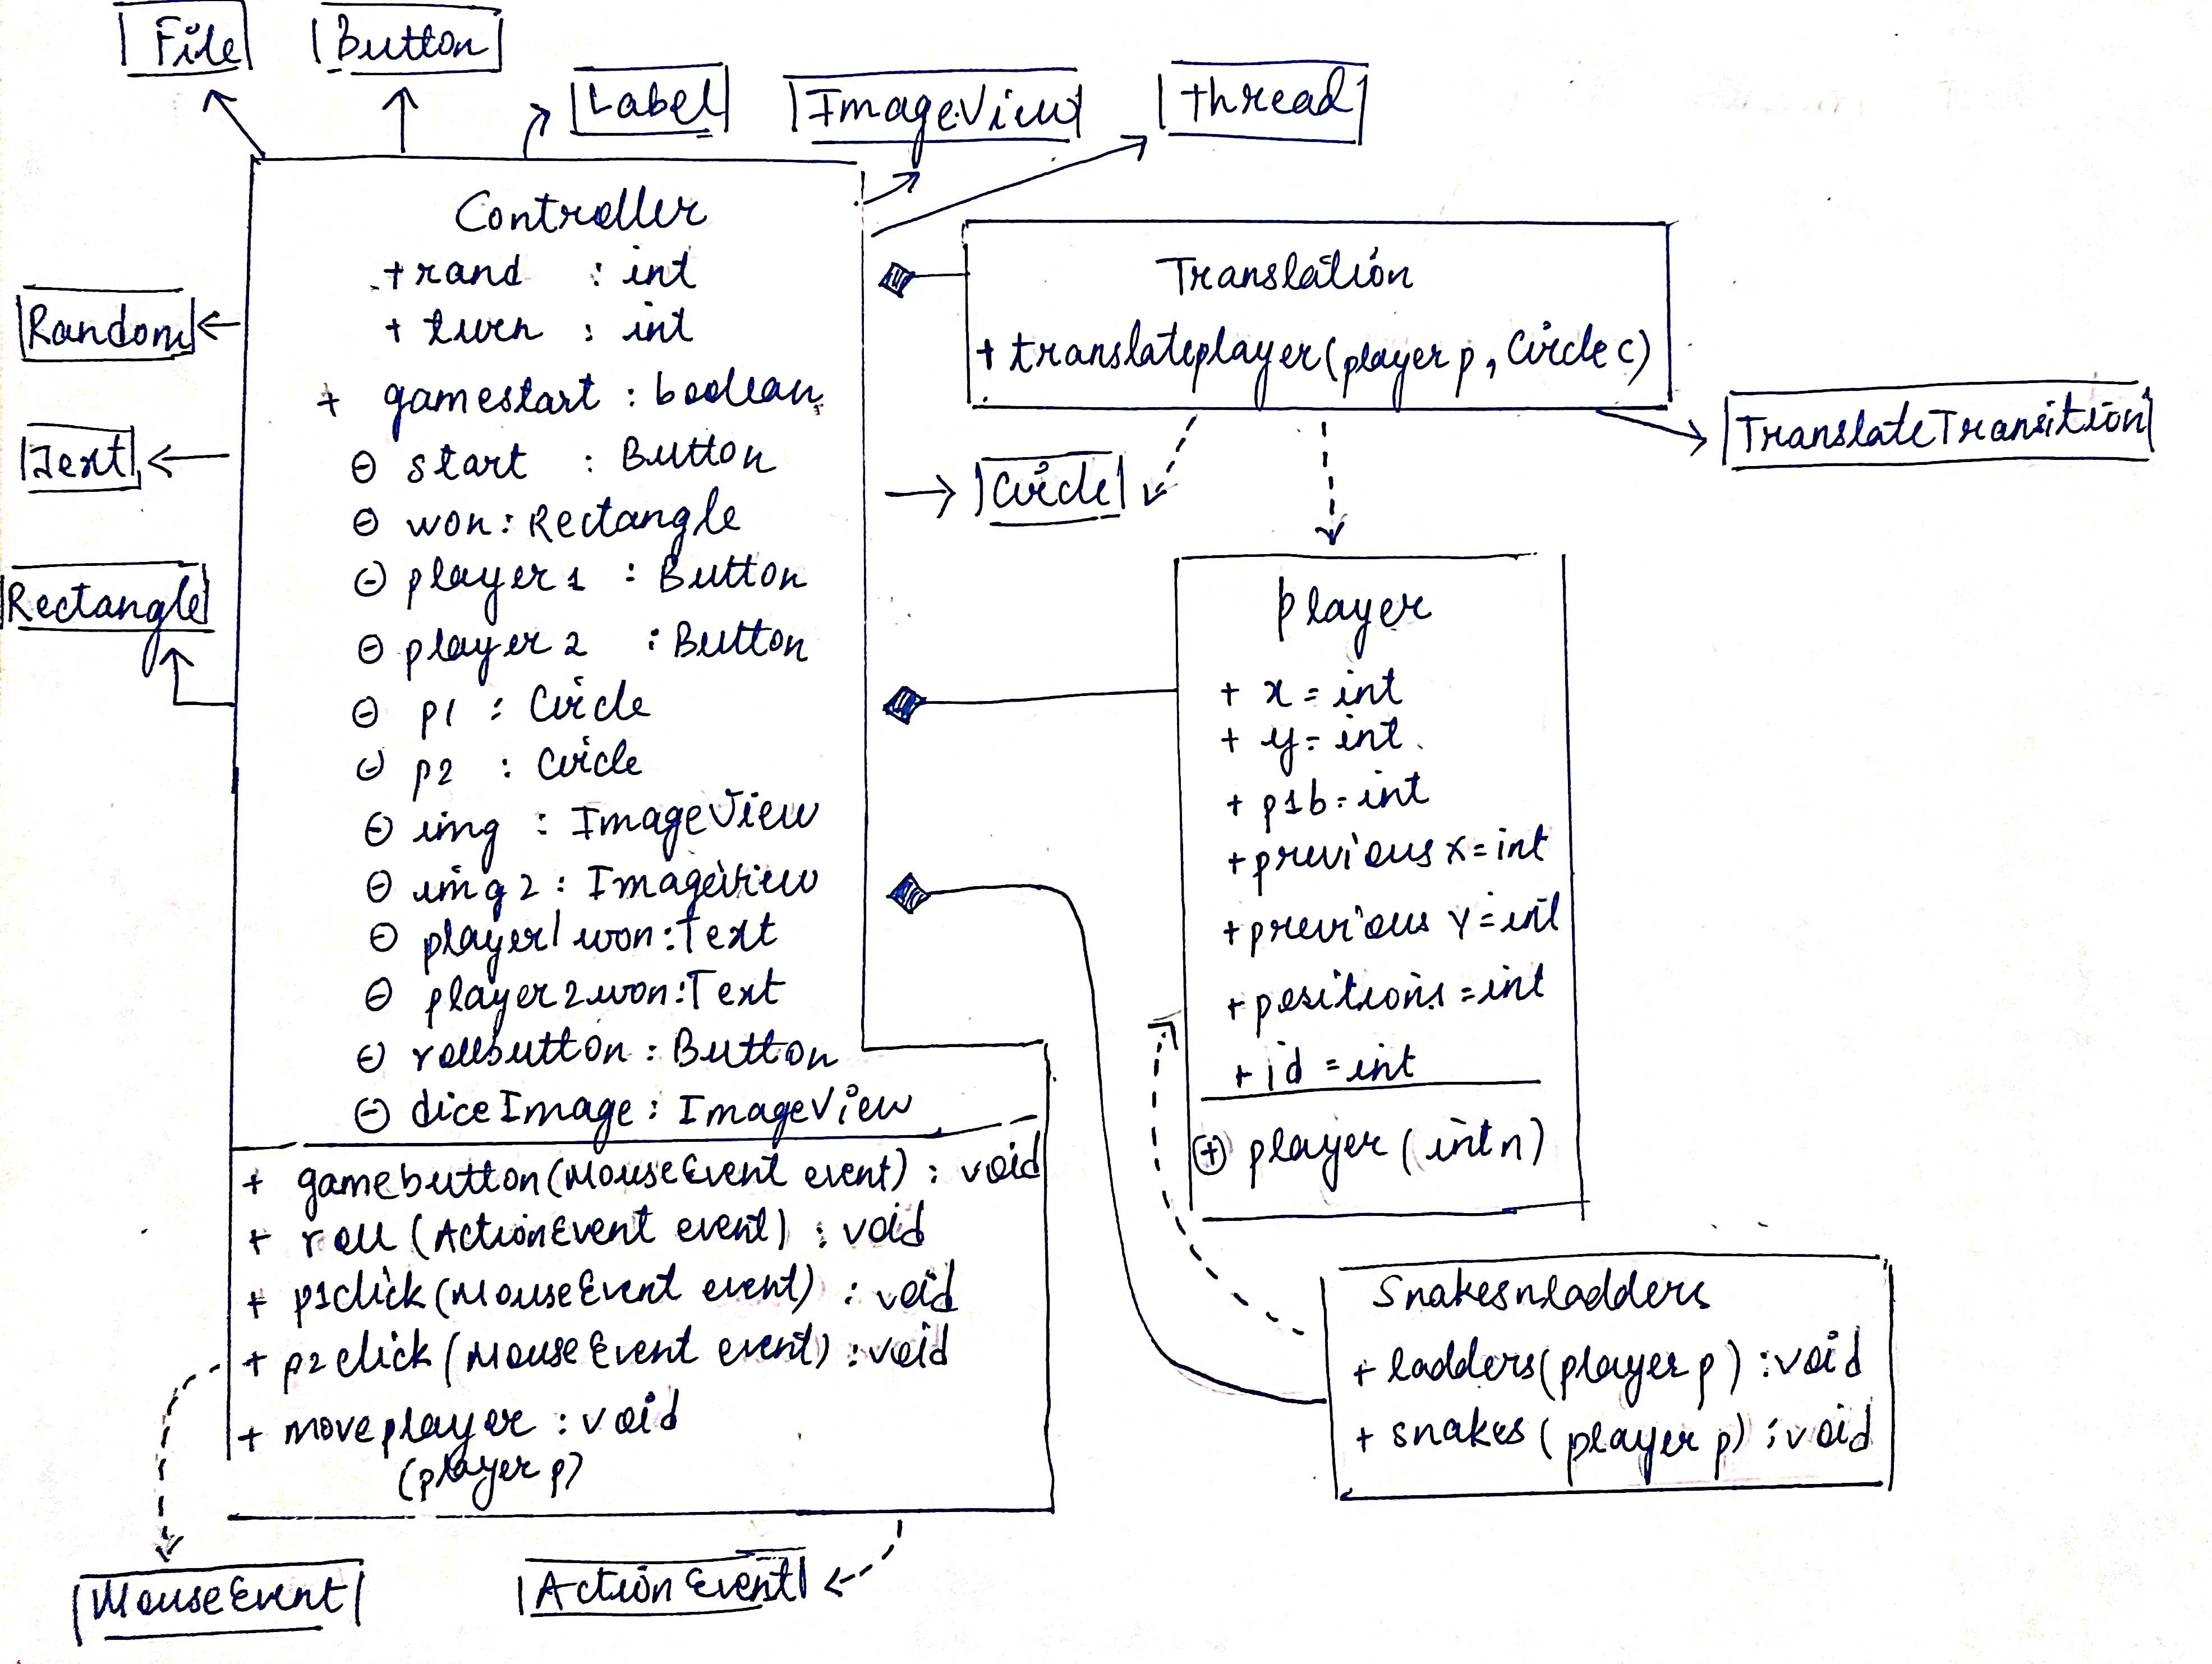 File
Button
Label
ImageView
thread
Controller
+ rand : int
+ turn : int
+ gamestart : boolean
⊖ start : Button
⊖ won : Rectangle
⊖ player1 : Button
⊖ player2 : Button
⊖ p1 : Circle
⊖ p2 : Circle
⊖ img : ImageView
⊖ img2 : Imageview
⊖ player1won : Text
⊖ player2won : Text
⊖ rollbutton : Button
⊖ diceImage : ImageView
+ gamebutton(MouseEvent event) : void
+ roll (ActionEvent event) : void
+ p1click (MouseEvent event) : void
+ p2click (MouseEvent event) : void
+ moveplayer : void
(player p)
Random
Text
Rectangle
Translation
+ translateplayer(player p, Circle c)
TranslateTransition
Circle
player
+ x = int
+ y = int
+ p1b = int
+ previous x = int
+ previous Y = int
+ positions = int
+ id = int
⊕ player (int n)
Snakesnladders
+ ladders(player p) : void
+ snakes (player p) : void
MouseEvent
ActionEvent